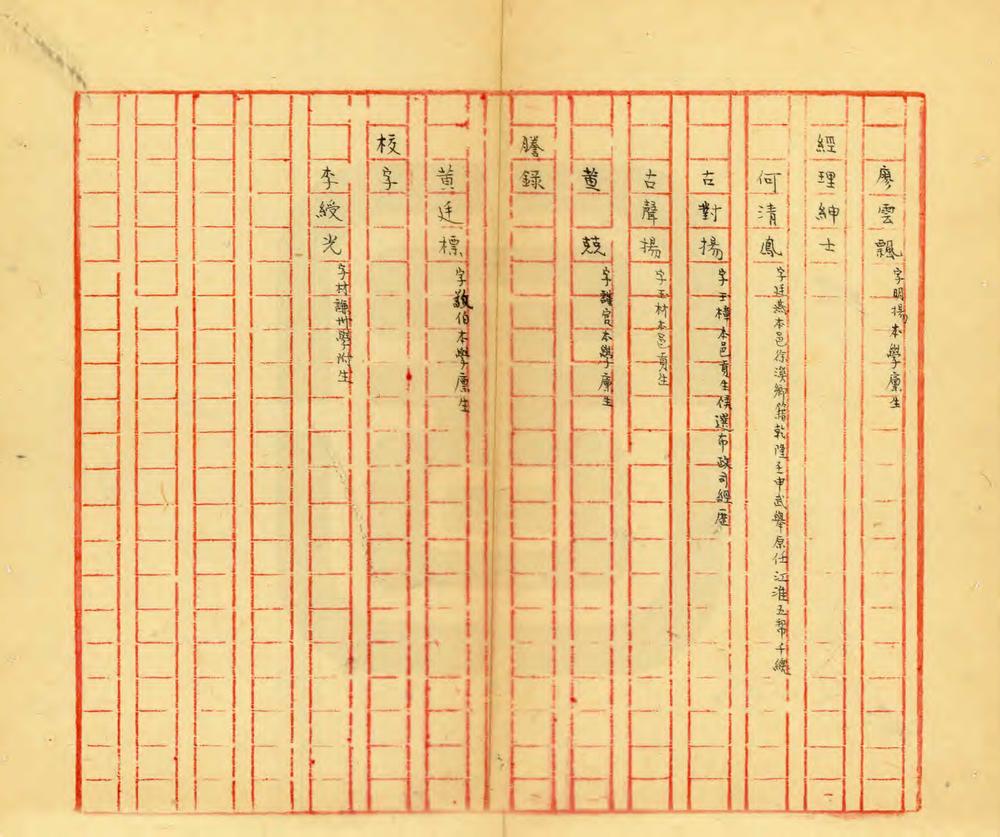 廖雲飄 字明揚本學廩生
經理紳士
何清鳳 字廷燕本邑徐溪鄉籍乾隆壬申武舉原任江淮五幫千總
古對揚 字王樟本邑貢生候選布政司經歷
古聲揚 字玉材本邑貢生
黄兢 字謹宮本學廩生
謄録
黄廷標 字敬伯本學廩生
校字
李綬光 字材謙州學附生